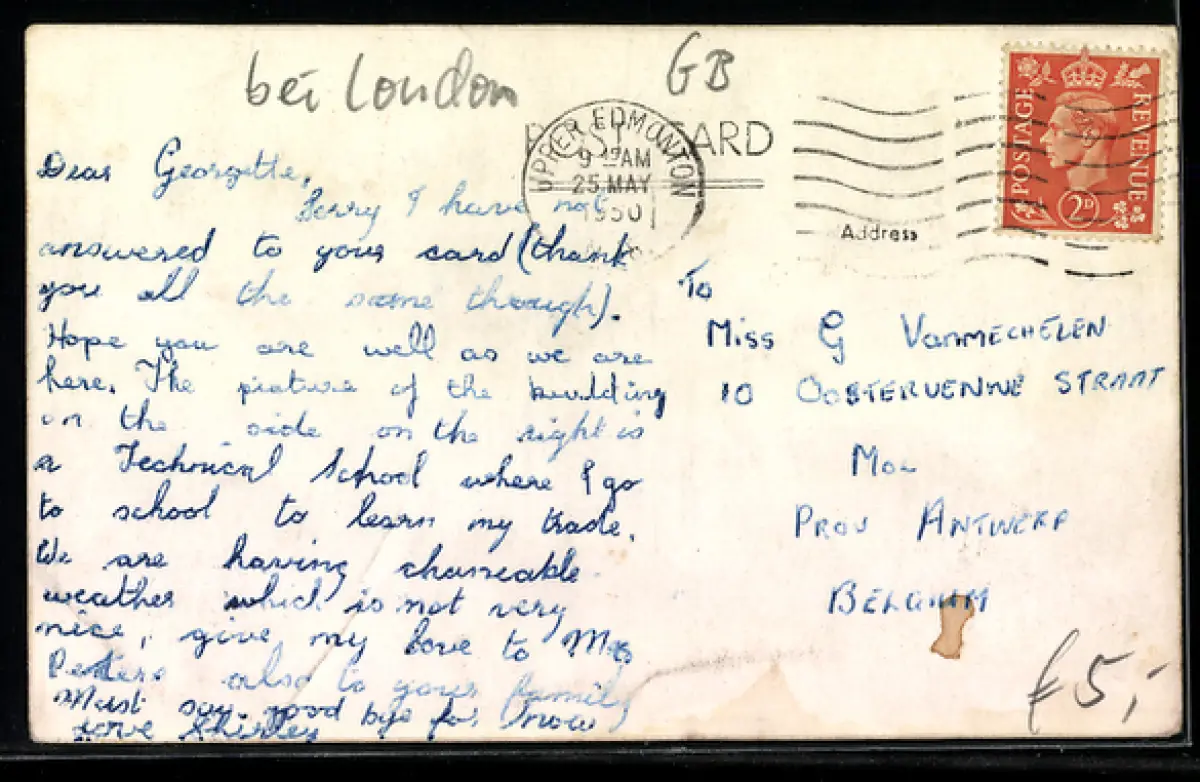 bei London
GB
POST CARD
UPPER EDMONTON
9 15 AM
25 MAY
1950
POSTAGE
REVENUE
2D
Address
Dear Georgette,
Sorry I have not
answered to your card (thank
you all the same through).
Hope you are well as we are
here. The picture of the building
on the side on the right is
a Technical School where I go
to school to learn my trade.
We are having chaneable
weather which is not very
nice, give my love to Mrs
Peeters also to your family
Must say good bye for now
Love Shirley
To
Miss G VANMECHELEN
10 OOSTERVENNE STRAAT
MOL
PROV ANTWERP
BELGIUM
£5,-